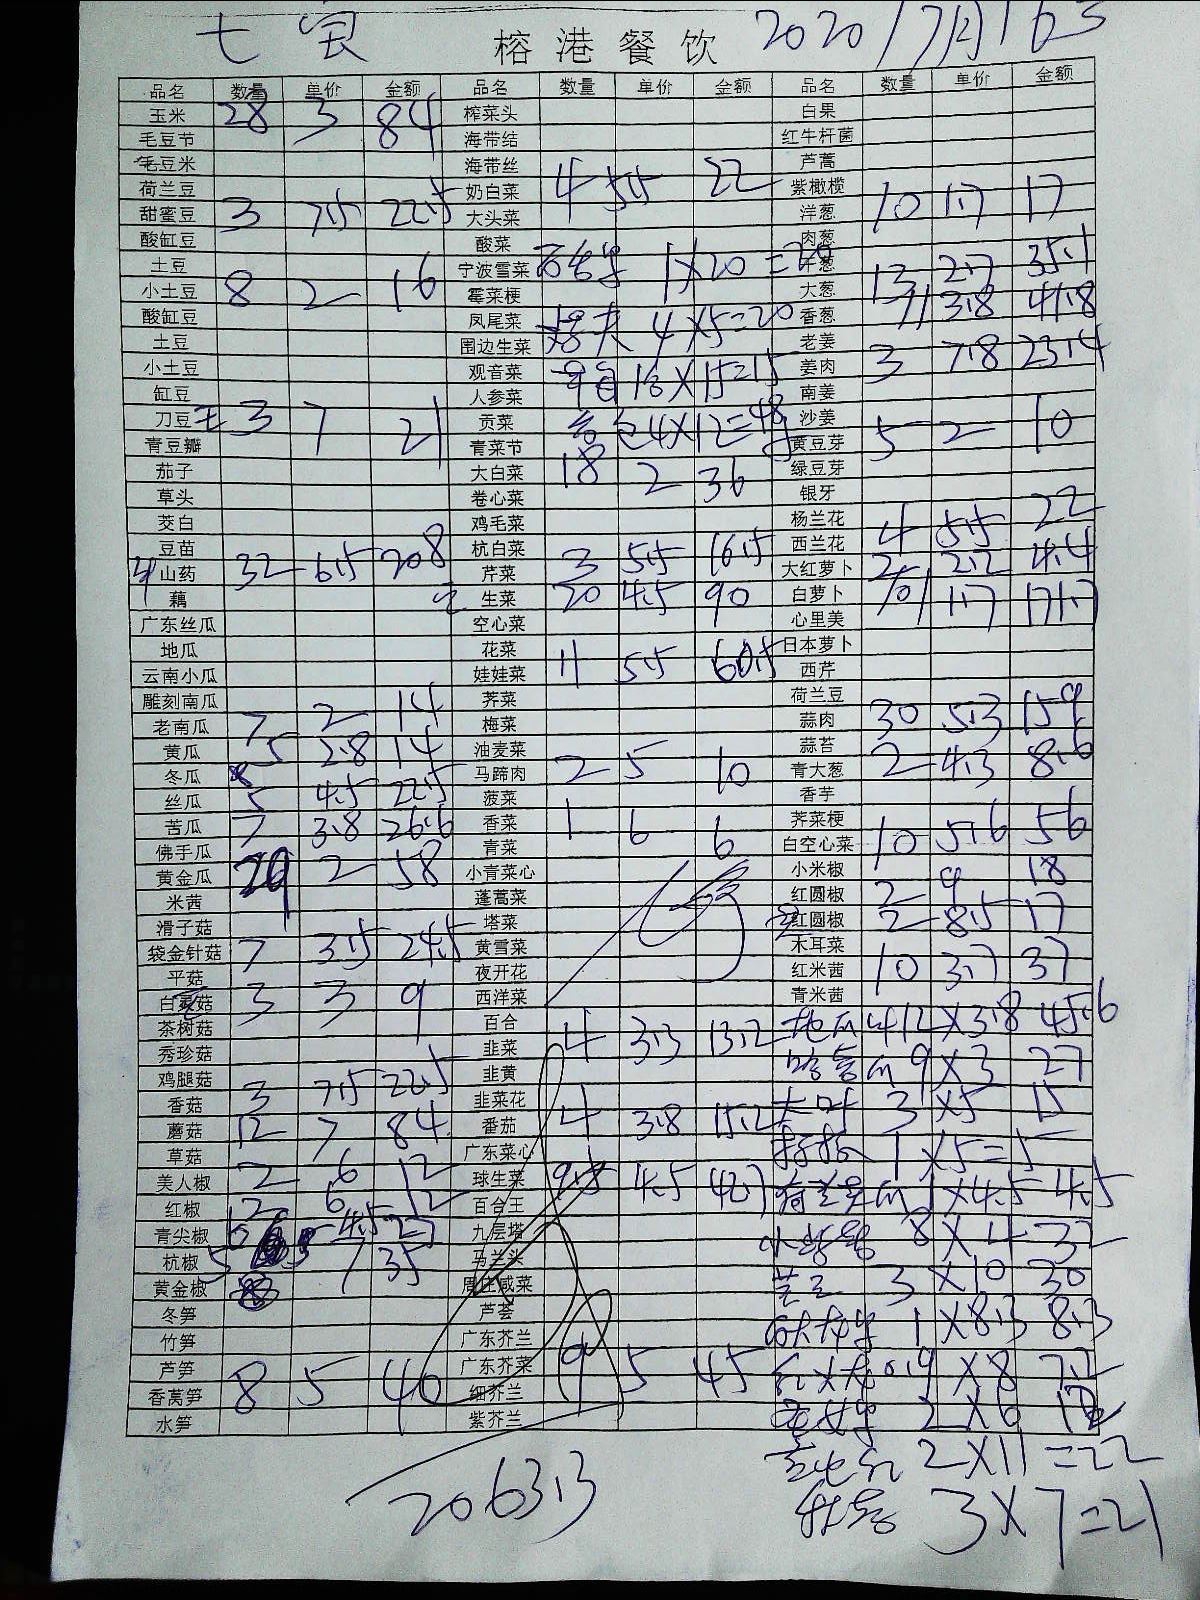 七宝 榕港餐饮 2020/7月16号
品名 数量 单价 金额 品名 数量 单价 金额 品名 数量 单价 金额
玉米 28 3 84 榨菜头 白果
毛豆节 海带结 红牛杆菌
毛豆米 海带丝 芦蒿
荷兰豆 奶白菜 4 5.5 22 紫橄榄
甜蜜豆 3 7.5 22.5 大头菜 洋葱 10 1.7 17
酸缸豆 酸菜 肉葱
土豆 宁波雪菜 1×20=20 洋葱 13 2.7 35.1
小土豆 8 2 16 霉菜梗 大葱
酸缸豆 凤尾菜 4×5=20 香葱 11 3.8 41.8
土豆 围边生菜 老姜
小土豆 观音菜 ×15=15 姜肉 3 7.8 23.4
缸豆 人参菜 南姜
刀豆 3 7 21 贡菜 4×12=48 沙姜
青豆瓣 青菜节 黄豆芽 5 2 10
茄子 大白菜 18 2 36 绿豆芽
草头 卷心菜 银牙
茭白 鸡毛菜 杨兰花
豆苗 杭白菜 西兰花 4 5.5 22
山药 32 6.5 208 芹菜 3 5.5 16.5 大红萝卜 2 2.2 4.4
藕 生菜 20 4.5 90 白萝卜 101 1.7 171.7
广东丝瓜 空心菜 心里美
地瓜 花菜 日本萝卜
云南小瓜 娃娃菜 11 5.5 60.5 西芹
雕刻南瓜 荠菜 荷兰豆
老南瓜 7 2 14 梅菜 蒜肉 30 5.3 159
黄瓜 5 2.8 14 油麦菜 蒜苔
冬瓜 马蹄肉 2 5 10 青大葱 2 4.3 8.6
丝瓜 5 4.5 22.5 菠菜 香芋
苦瓜 7 3.8 26.6 香菜 1 6 6 荠菜梗
佛手瓜 青菜 白空心菜 10 5.6 56
黄金瓜 29 2 58 小青菜心 小米椒
米茜 蓬蒿菜 红圆椒 2 9 18
滑子菇 塔菜 红圆椒 2 8.5 17
袋金针菇 7 3.5 24.5 黄雪菜 木耳菜
平菇 夜开花 红米茜 10 3.7 37
白灵菇 3 3 9 西洋菜 青米茜
茶树菇 百合 地瓜 12×3.8 45.6
秀珍菇 韭菜 4 3.3 13.2 9×3 27
鸡腿菇 韭黄
香菇 3 7.5 22.5 韭菜花 3×5 15
蘑菇 12 7 84 番茄 4 3.8 15.2
草菇 广东菜心 1×5=5
美人椒 2 6 12 球生菜 9.5 4.5 42.7 1×4.5 4.5
红椒 2 6 12 百合王
青尖椒 6 4.5 27 九层塔 8×4 32
杭椒 5 7 35 马兰头
黄金椒 周庄咸菜 3×10 30
冬笋 芦荟 1×8.3 8.3
竹笋 广东芥兰
芦笋 8 5 40 广东芥菜 9 5 45 0.9×8 7.2
香莴笋 细芥兰
水笋 紫芥兰 2×6 12
2×11=22
2063.3 3×7=21